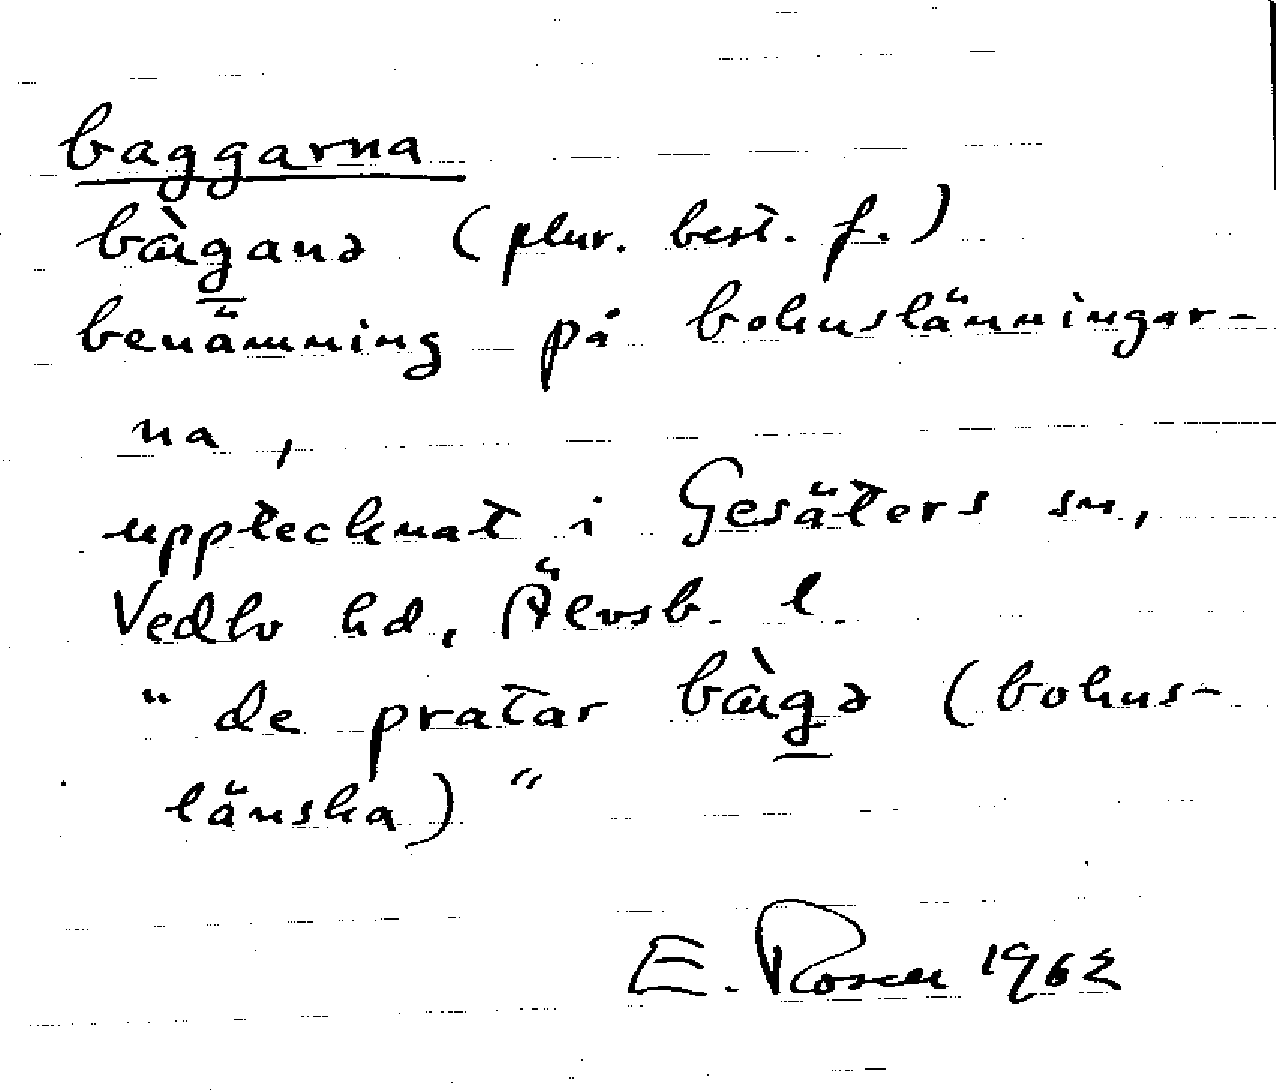 baggarna
bàg̲anə (plur. best. f.)
benämning på bohuslänningar-
na,
upptecknat i Gesäters sn,
Vedbo hd, Älvsb. l
"de pratar bàg̲ə (bohus-
länska)"
E. Rosen 1962